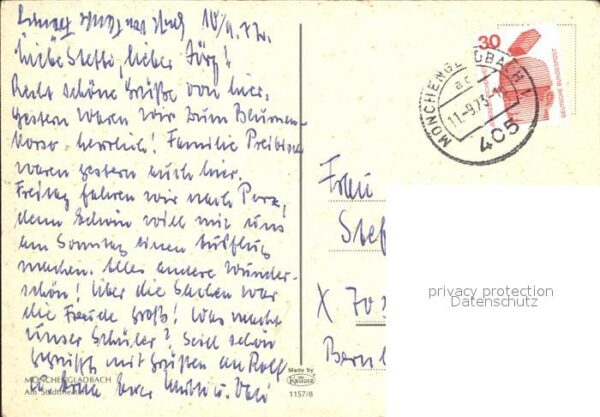 Liebe Steffi, lieber Jörg!
Recht schöne Grüße von hier.
Gestern waren wir zum Blumen-
korso. Herrlich! Familie
waren gestern auch hier.
Freitag fahren wir nach
denn Edwin will mit uns
am Sonntag einen Ausflug
machen. Alles andere wunder-
schön! Über die Sachen war
die Freude groß! Was macht
unser Schüler? Seid schön
gegrüßt mit Grüßen an Rolf
Eure Mutti u. Vati
MÖNCHENGLADBACH
Am Stadttheater
Made by
Krüger
1157/8
30
DEUTSCHE BUNDESPOST
MÖNCHENGLADBACH 1
405
Frau
X 70
privacy protection
Datenschutz